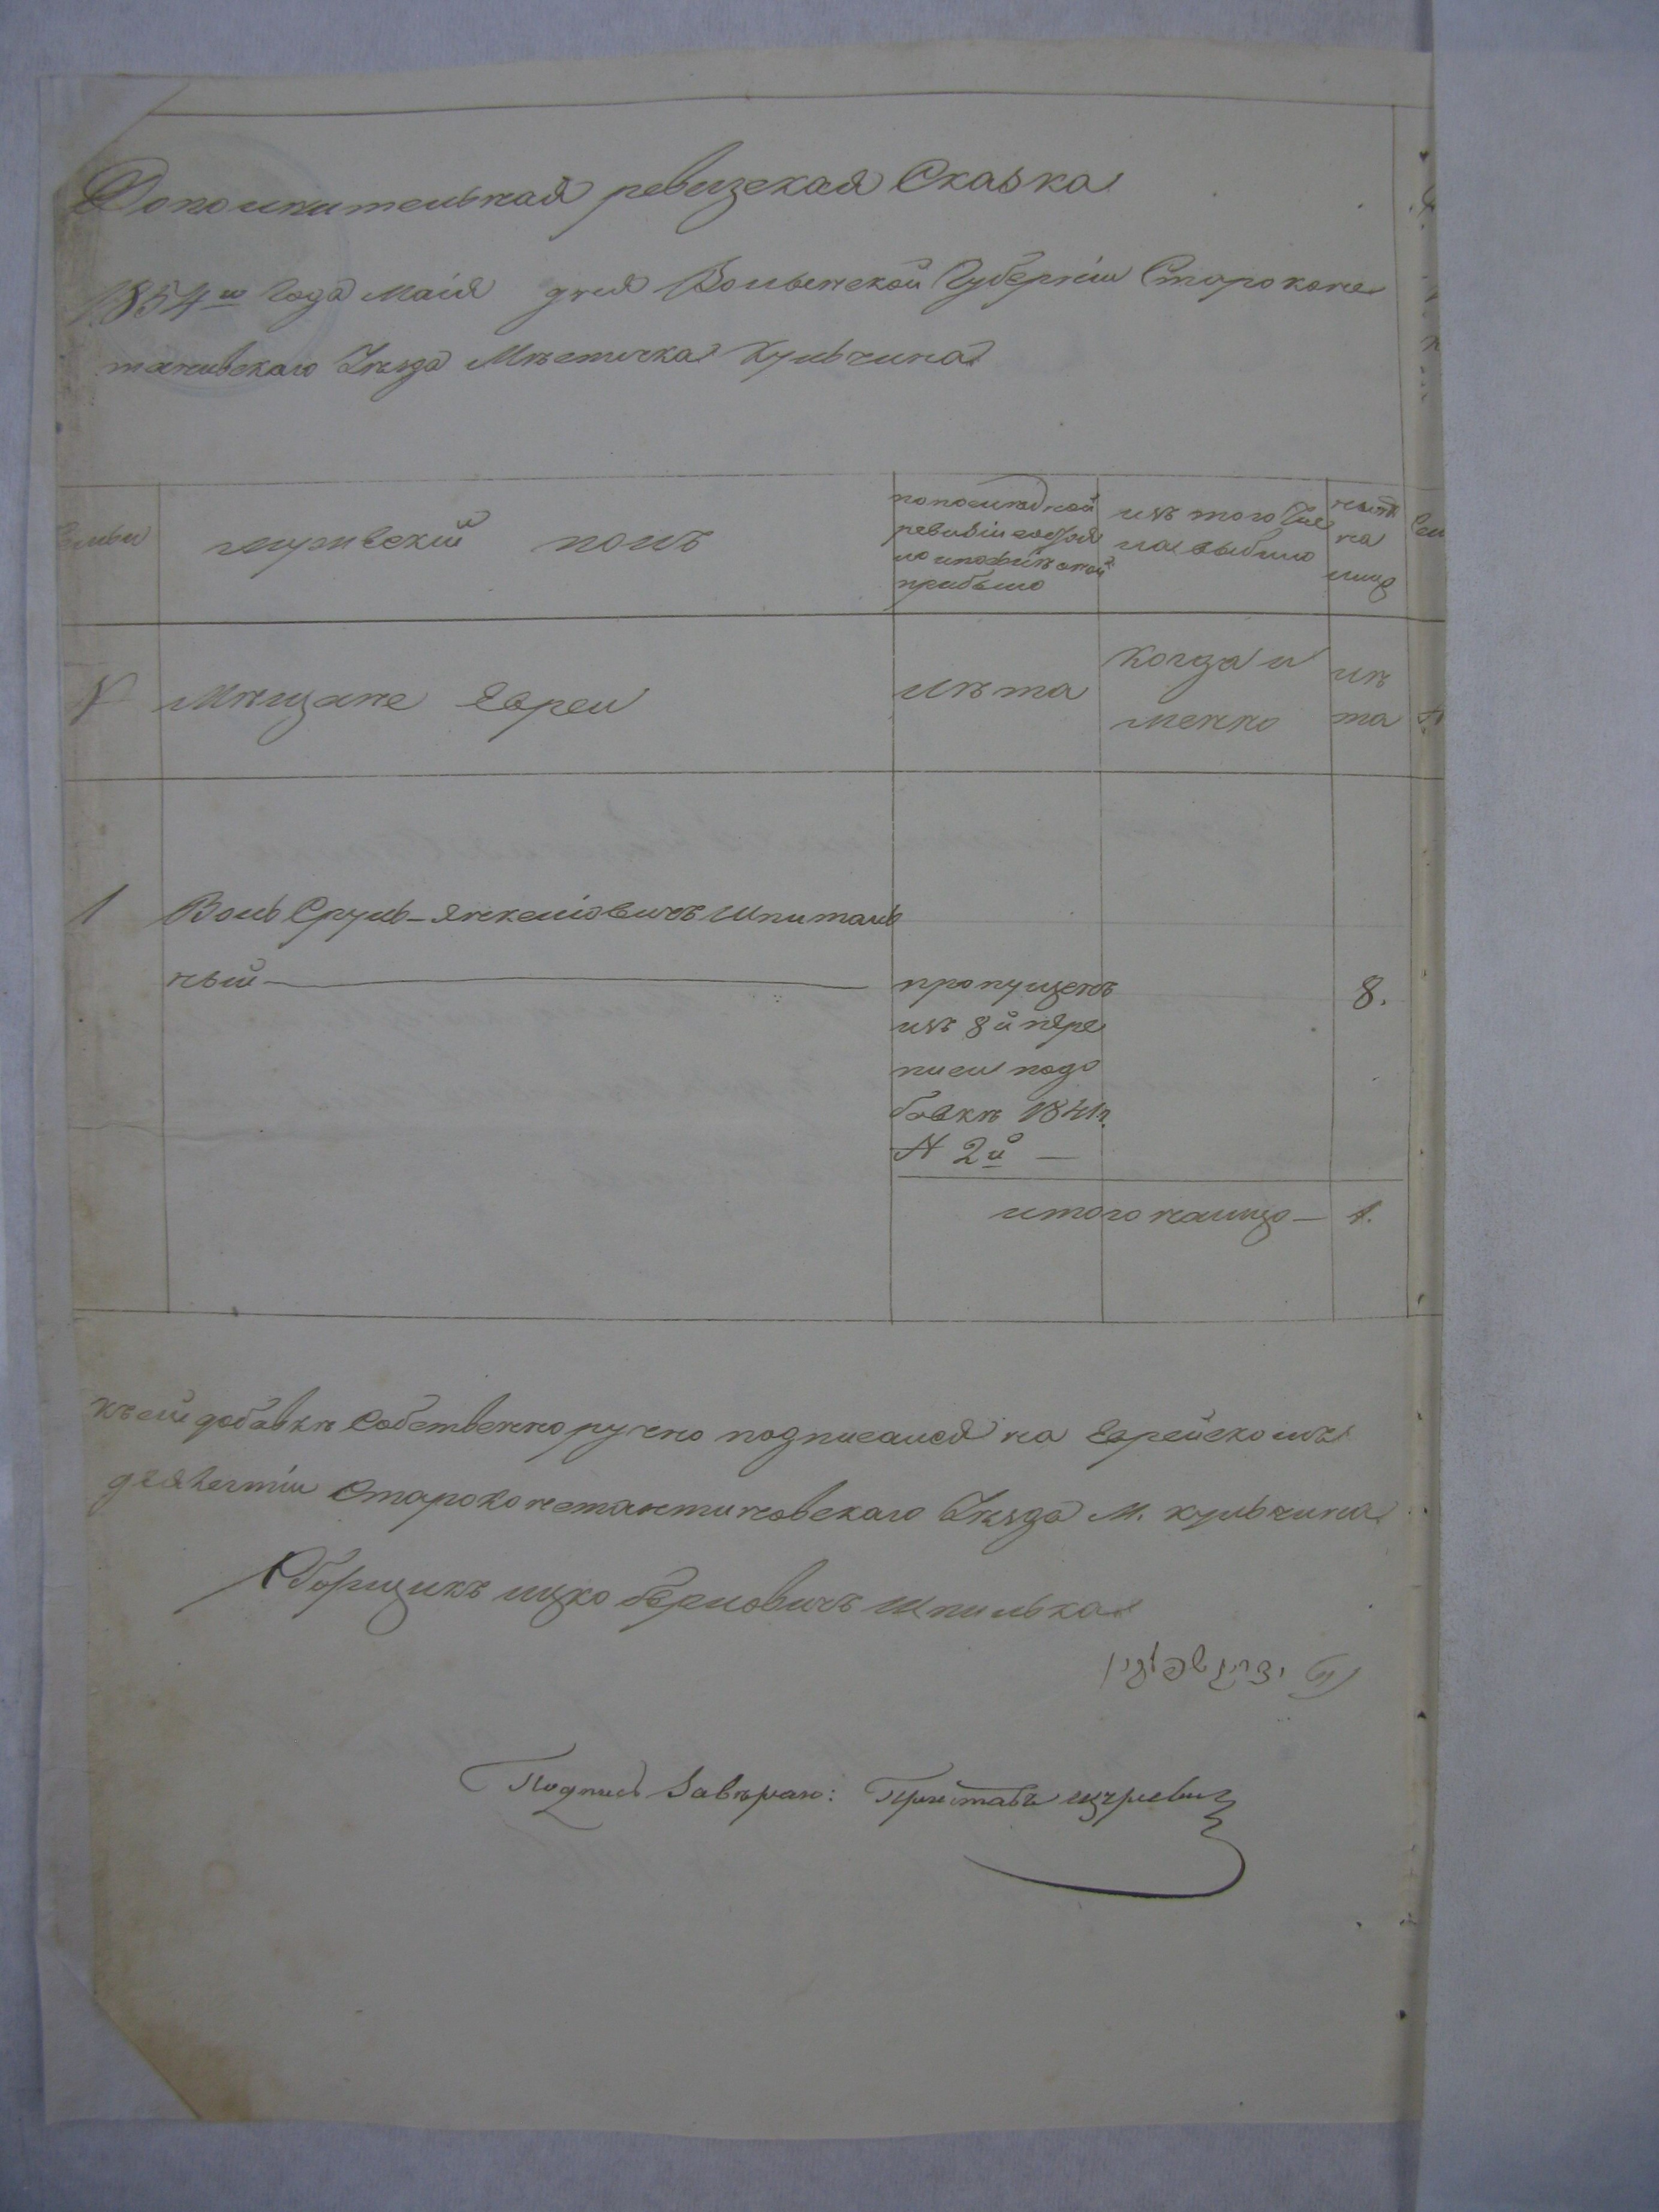 Дополнительная ревизская Сказка
1854го Года Маія дня Волынской Губерніи Староконс
тантиновскаго Уѣзда Мѣстечка Кульчина
Семьи
мужескій полъ
по последней
ревизіи состоя
ло и после оной
прибыло
изъ того Чис
ла выбыло
ныне
на
лицо
№
Мѣщане Евреи
Лѣта
Когда и
менно
лѣ
та
1
Воль Сруль-Янкеліовичъ Шпиталь
ный
пропущенъ
изъ 8й пере
писи подо
бавкѣ 1841г.
№ 2й —
8.
итого налицо — 1.
къ сей добавкѣ Собственноручно подписался на Еврейскомъ
Староконстантиновскаго Уѣзда М. Кульчина
Сборщикъ Ицко Берковичъ Шпилька
Подпись Завѣряю: Приставъ